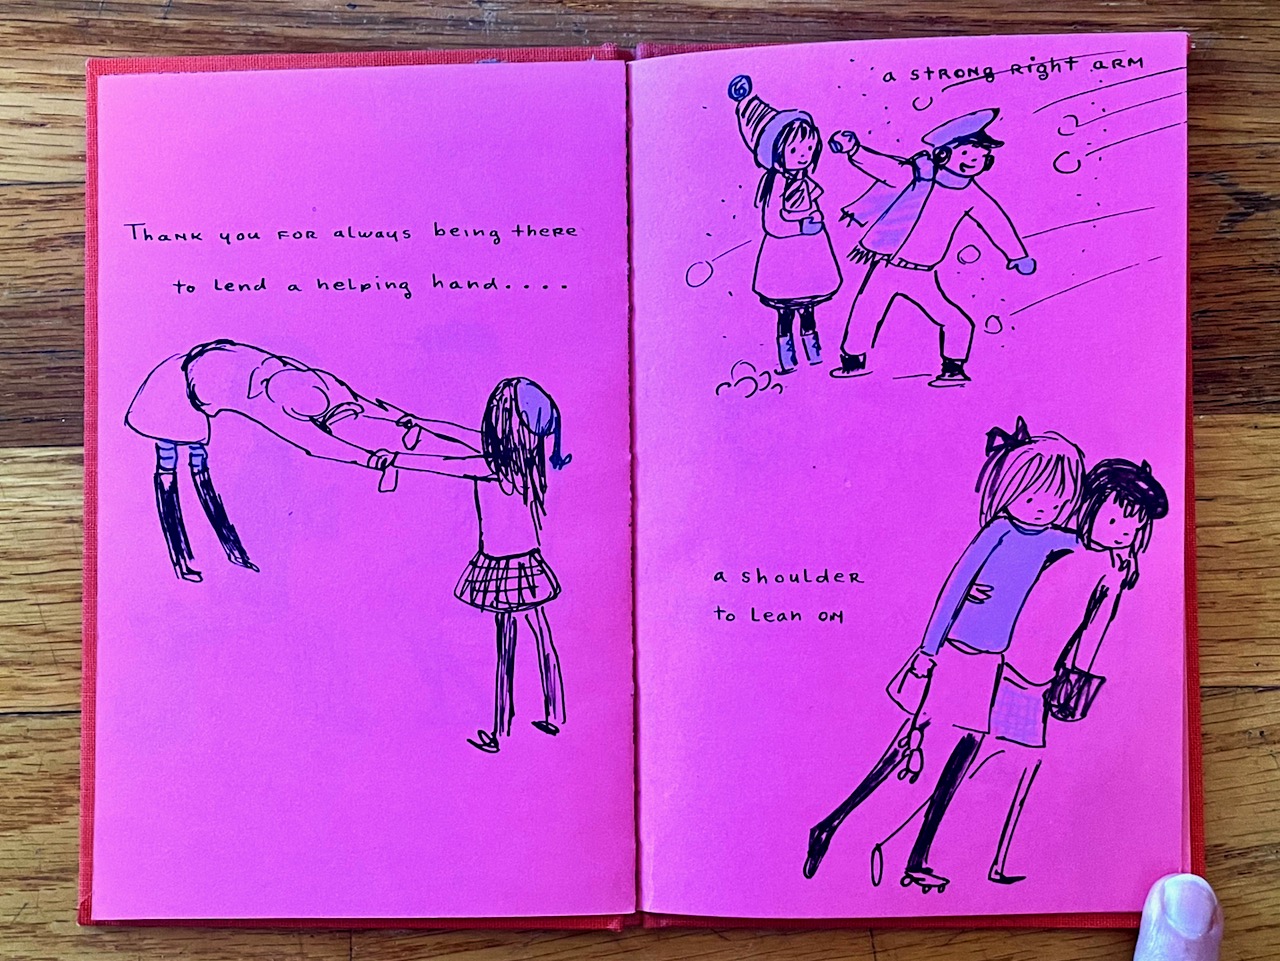 Thank you for always being there
to lend a helping hand....
a strong right arm
a shoulder
to lean on